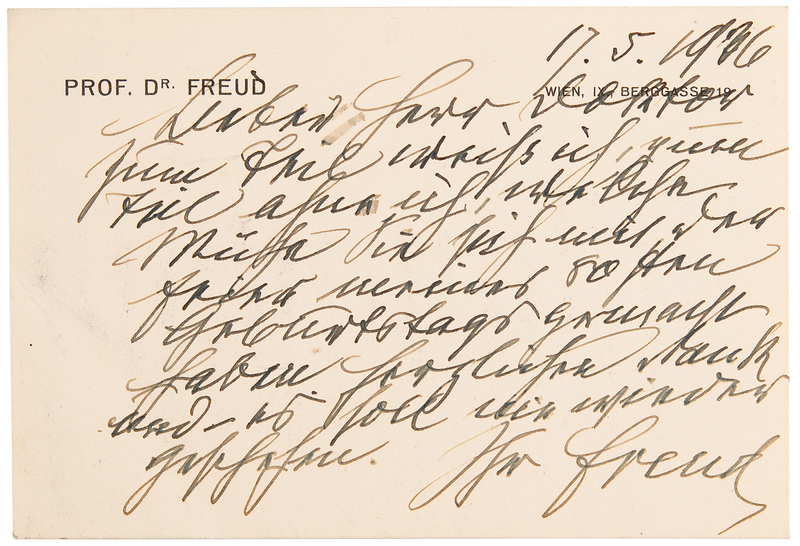 17. 5. 1936
PROF. DR. FREUD
WIEN, IX., BERGGASSE 19
Lieber Herr Doktor
zum Teil weiß ich, zum
Teil ahne ich, welche
Mühe Sie sich mit der
Feier meines 80sten
Geburtstags gemacht
haben. Herzlichen Dank
und – es soll nie wieder
geschehen. Ihr Freud